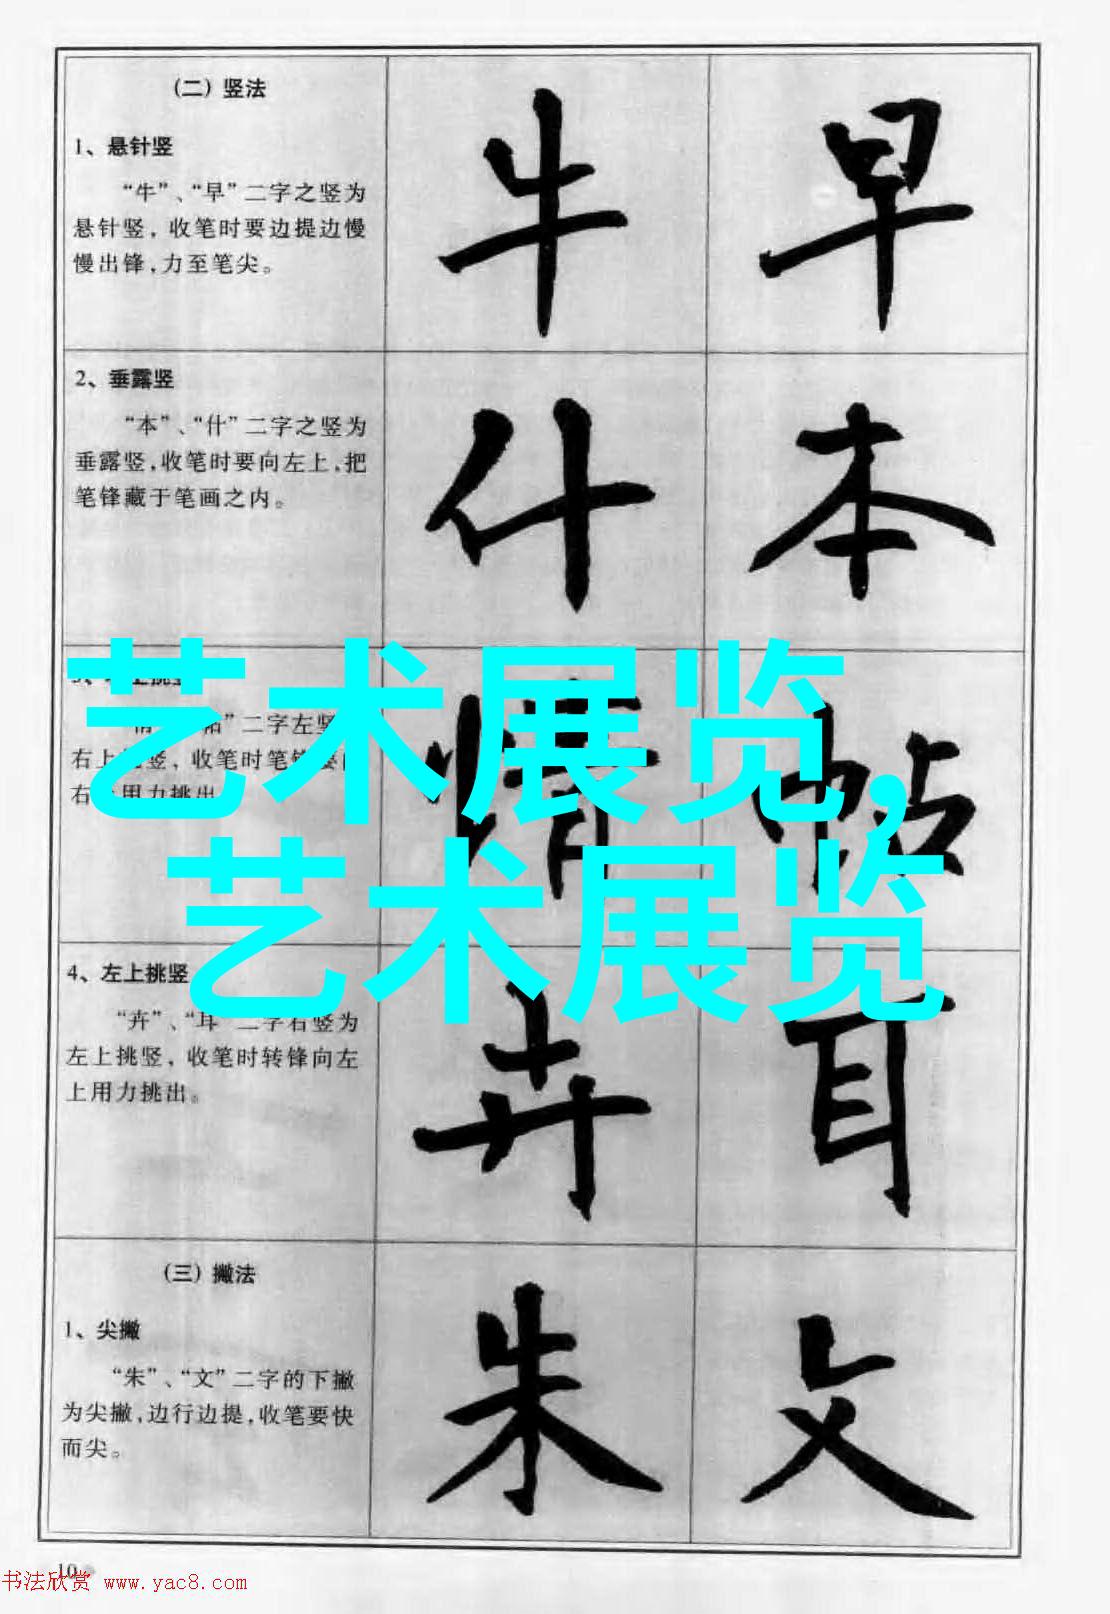 (二) 竖法
1、悬针竖
“牛”、“早”二字之竖为
悬针竖, 收笔时要边提边慢
慢出锋,力至笔尖。
牛 早
2、垂露竖
“本”、“什”二字之竖为
垂露竖,收笔时要向左上,把
笔锋藏于笔画之内。
什 本
艺术展览,
艺术展览
二字左竖
右上 竖, 收笔时笔
右 用力挑出
帖
4、左上挑竖
“卉”、“耳”二字右竖为
左上挑竖, 收笔时转锋向左
上用力挑出。
卉 耳
(三) 撇法
1、尖撇
“朱”、“文”二字的下撇
为尖撇,边行边提,收笔要快
而尖。
朱 文
10
书法欣赏 www.yac8.com